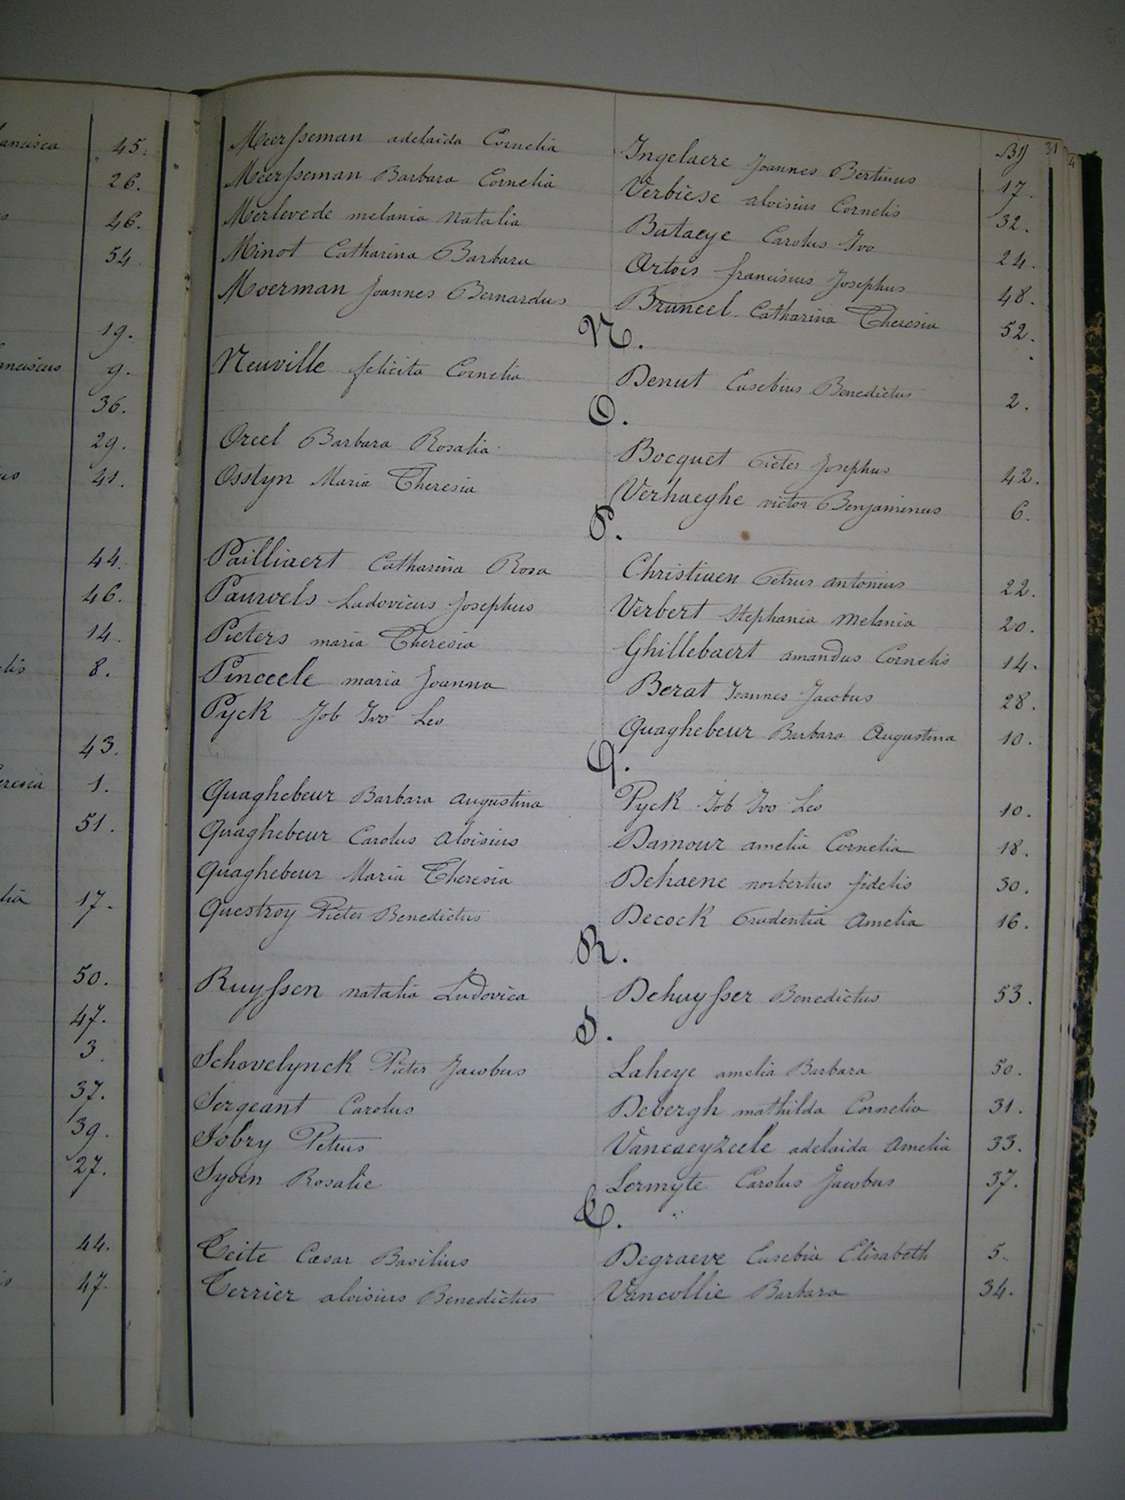 ancisca 45.
26.
46.
54
19.
anciscus 9.
36.
29.
41.
44.
46.
14.
elis 8.
43.
eresia 1.
51.
17.
50.
47.
3.
37.
39.
27.
44.
47.
31
Meersseman adelaida Cornelia Ingelaere Joannes Bertinus 17.
Meersseman Barbara Cornelia Verbiese aloisius Cornelis 32.
Merlevede melania Natalia Butaeye Carolus Ivo 24.
Minot Catharina Barbara Artois franciscus Josephus 48.
Moerman Joannes Bernardus Bruneel Catharina Theresia 52.
N.
Neuville felicita Cornelia Denut Eusebius Benedictus 2.
O.
Oreel Barbara Rosalia Bocquet Pieter Josephus 42.
Osstyn Maria Theresia Verhaeghe victor Benjaminus 6.
P.
Pailliaert Catharina Rosa Christiaen Petrus antonius 22.
Pauwels Ludovicus Josephus Verbert Stephania melania 20.
Pieters maria Theresia Ghillebaert amandus Cornelis 14.
Pinceele maria Joanna Berat Joannes Jacobus 28.
Pyck Job Ivo Leo Quaghebeur Barbara Augustina 10.
Q.
Quaghebeur Barbara augustina Pyck Job Ivo Leo 10.
Quaghebeur Carolus Aloisius Damour amelia Cornelia 18.
Quaghebeur Maria Theresia Dehaene norbertus fidelis 30.
Questroy Pieter Benedictus Decock Prudentia Amelia 16.
R.
Ruyssen natalia Ludovica Dehuysser Benedictus 53.
S.
Schovelynck Pieter Jacobus Laheye amelia Barbara 50.
Sergeant Carolus Debergh mathilda Cornelia 31.
Sobry Petrus Vancaeyzeele adelaida Amelia 33.
Syoen Rosalie Lermyte Carolus Jacobus 37.
T.
Teite Cæsar Basilius Degraeve Eusebia Elisabeth 5.
Terrier aloisius Benedictus Vancollie Barbara 34.